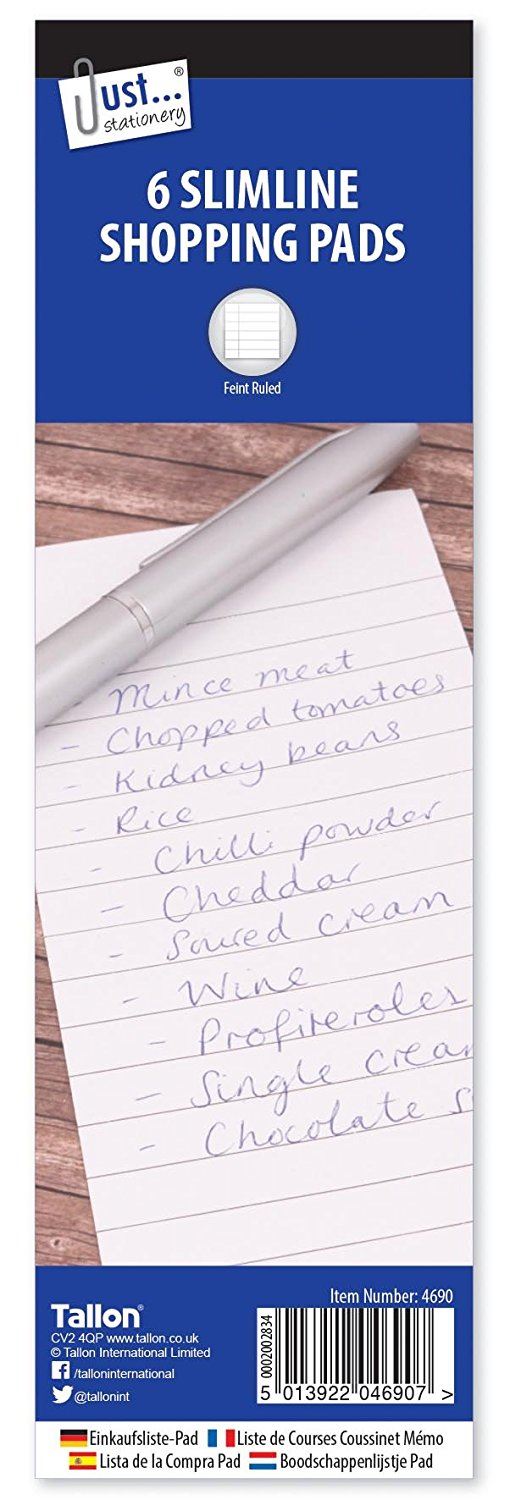 Just...®
stationery
6 SLIMLINE
SHOPPING PADS
Feint Ruled
Mince meat
- Chopped tomatoes
- Kidney beans
- Rice
- Chilli powder
- Cheddar
- Soured cream
- Wine
- Profiteroles
- Single crea
- Chocolate s
Item Number: 4690
Tallon®
CV2 4QP www.tallon.co.uk
© Tallon International Limited
/talloninternational
@tallonint
0002002834
5 013922 046907 >
Einkaufsliste-Pad Liste de Courses Coussinet Mémo
Lista de la Compra Pad Boodschappenlijstje Pad